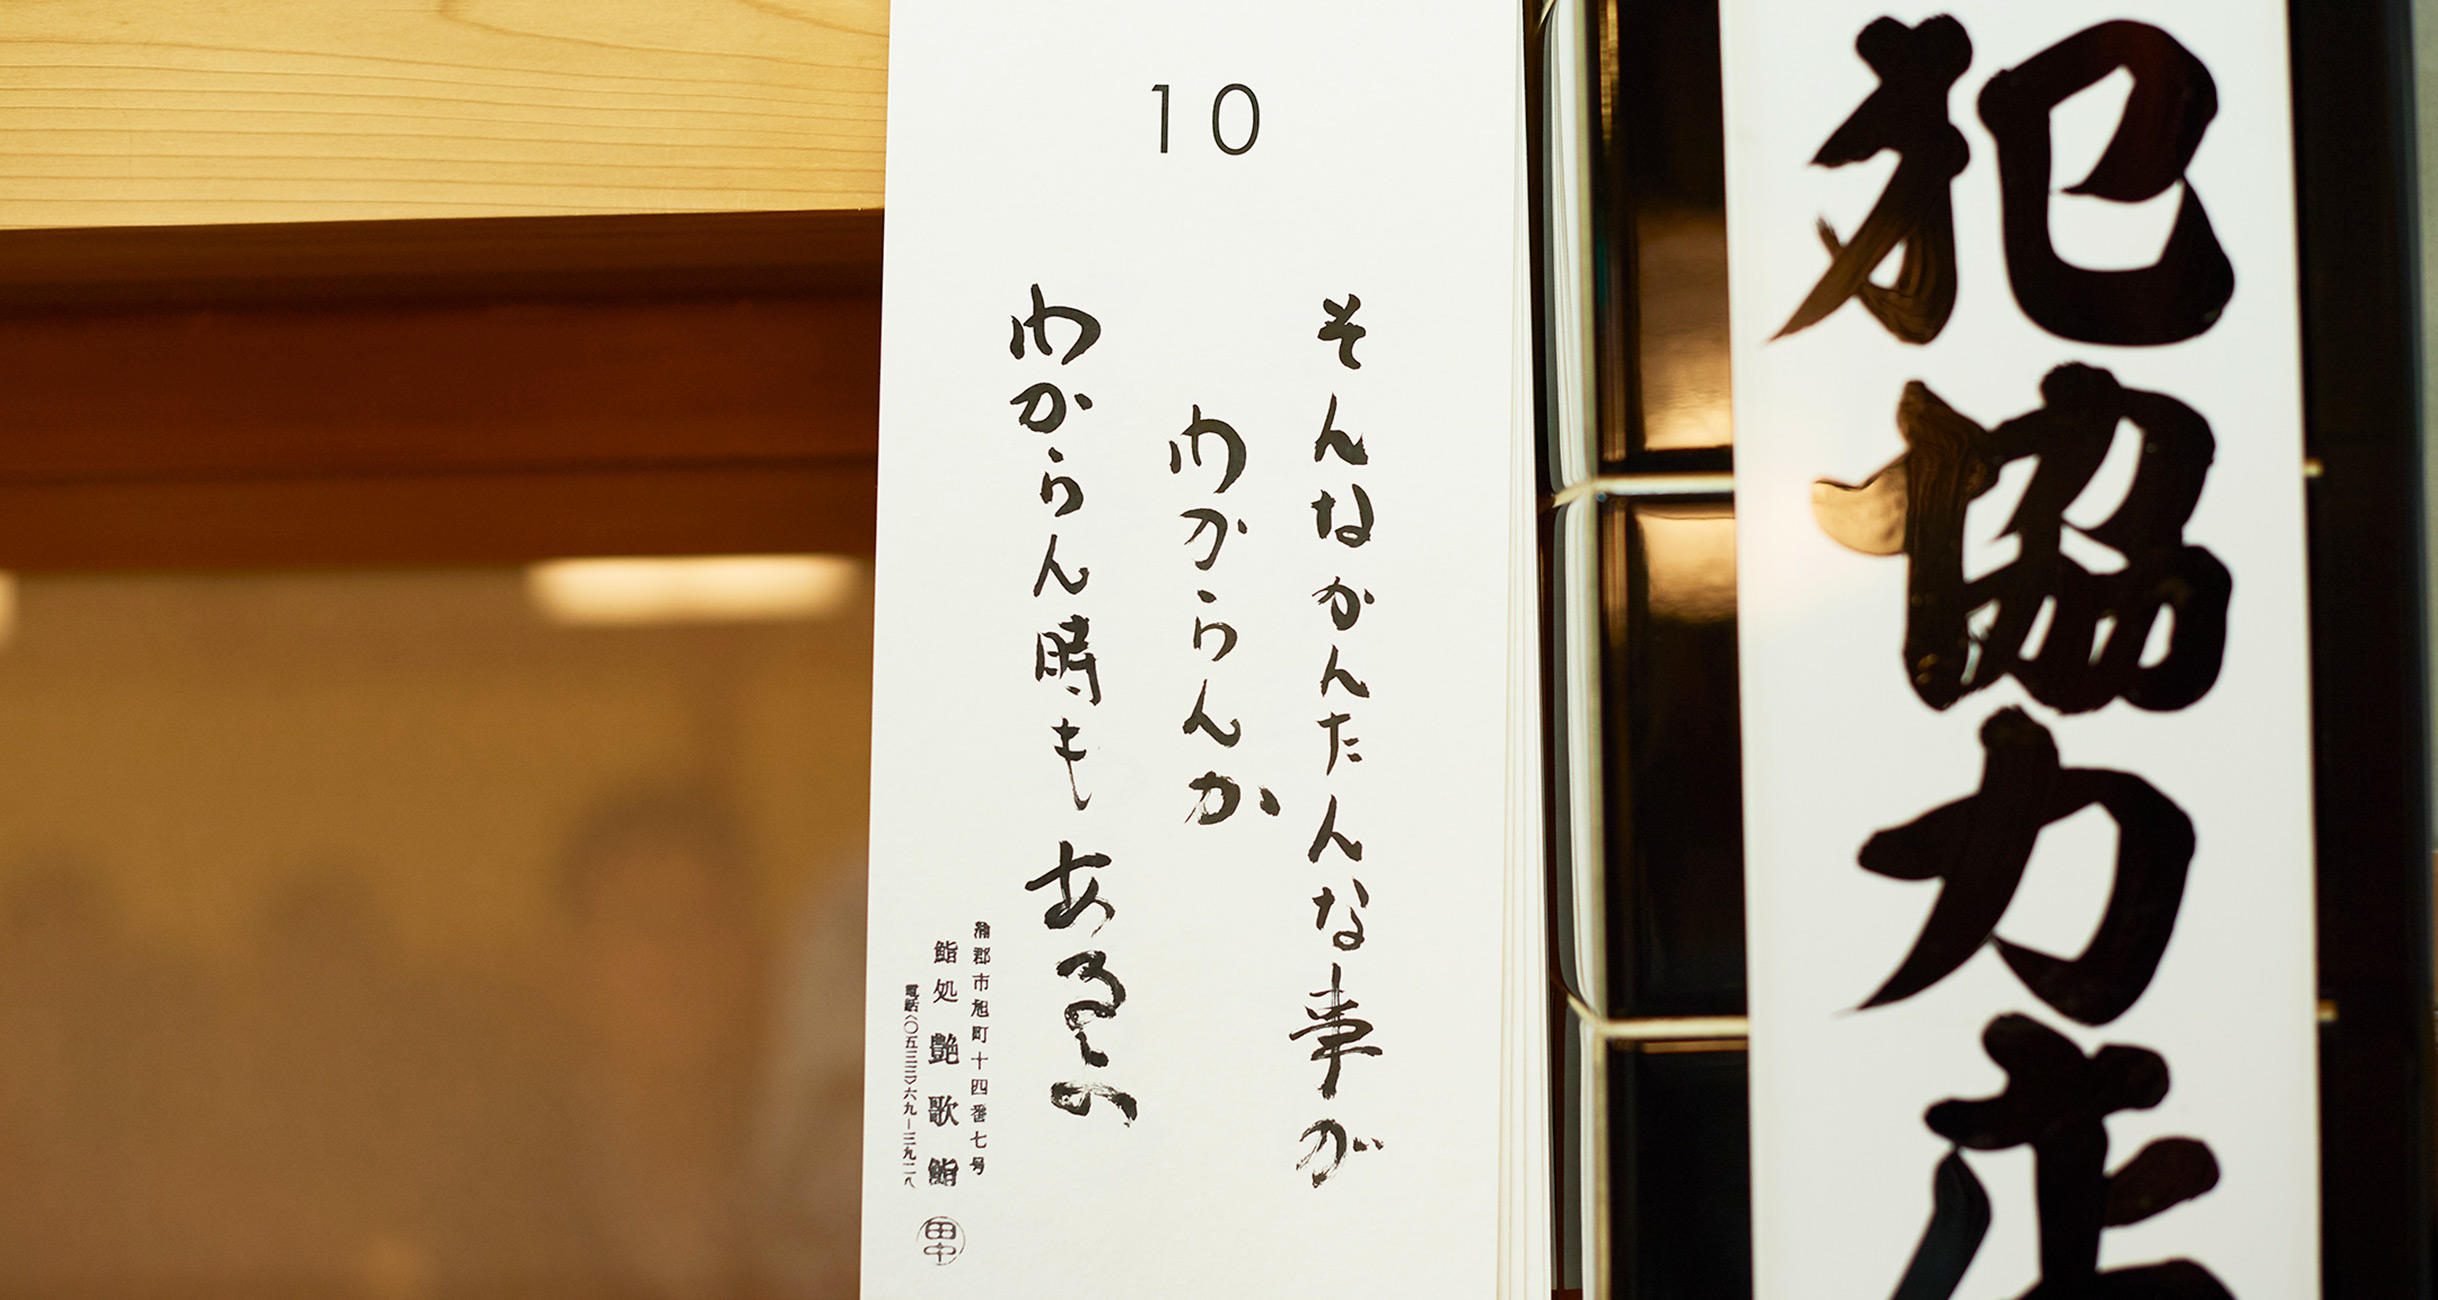 犯協力店
10
そんなかんたんな事が
わからんか
わからん時もある
蒲郡市旭町十四番七号
鮨処 艶歌鮨
電話〈〇五三三〉六九ー三九二八
田中